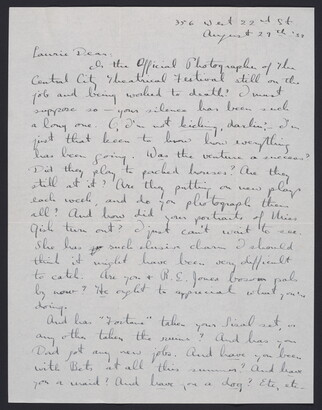 356 West 22nd St
August 27th '32
Laurie Dear:
Is the Official Photographer of the
Central City Theatrical Festival still on the
job and being worked to death? I must
suppose so — your silence has been such
a long one. (I'm not kicking, darlin', I'm
just that keen to know how everything
has been going. Was the venture a success?
Did they play to packed houses? Are they
still at it? Are they putting on new plays
each week, and do you photograph them
all? And how did your portraits of Miss
Gish turn out? I just can't wait to see.
She has such elusive charm I should
think it might have been very difficult
to catch. Are you & R.E. Jones bosom pals
by now? He ought to appreciate what you're
doing.
And has "Fortune" taken your Sisal set, or
any other taken the ruins? And has you
Dad got any new jobs. And have you been
with Bets at all this summer? And have
you a maid? And have you a dog? Etc, etc.